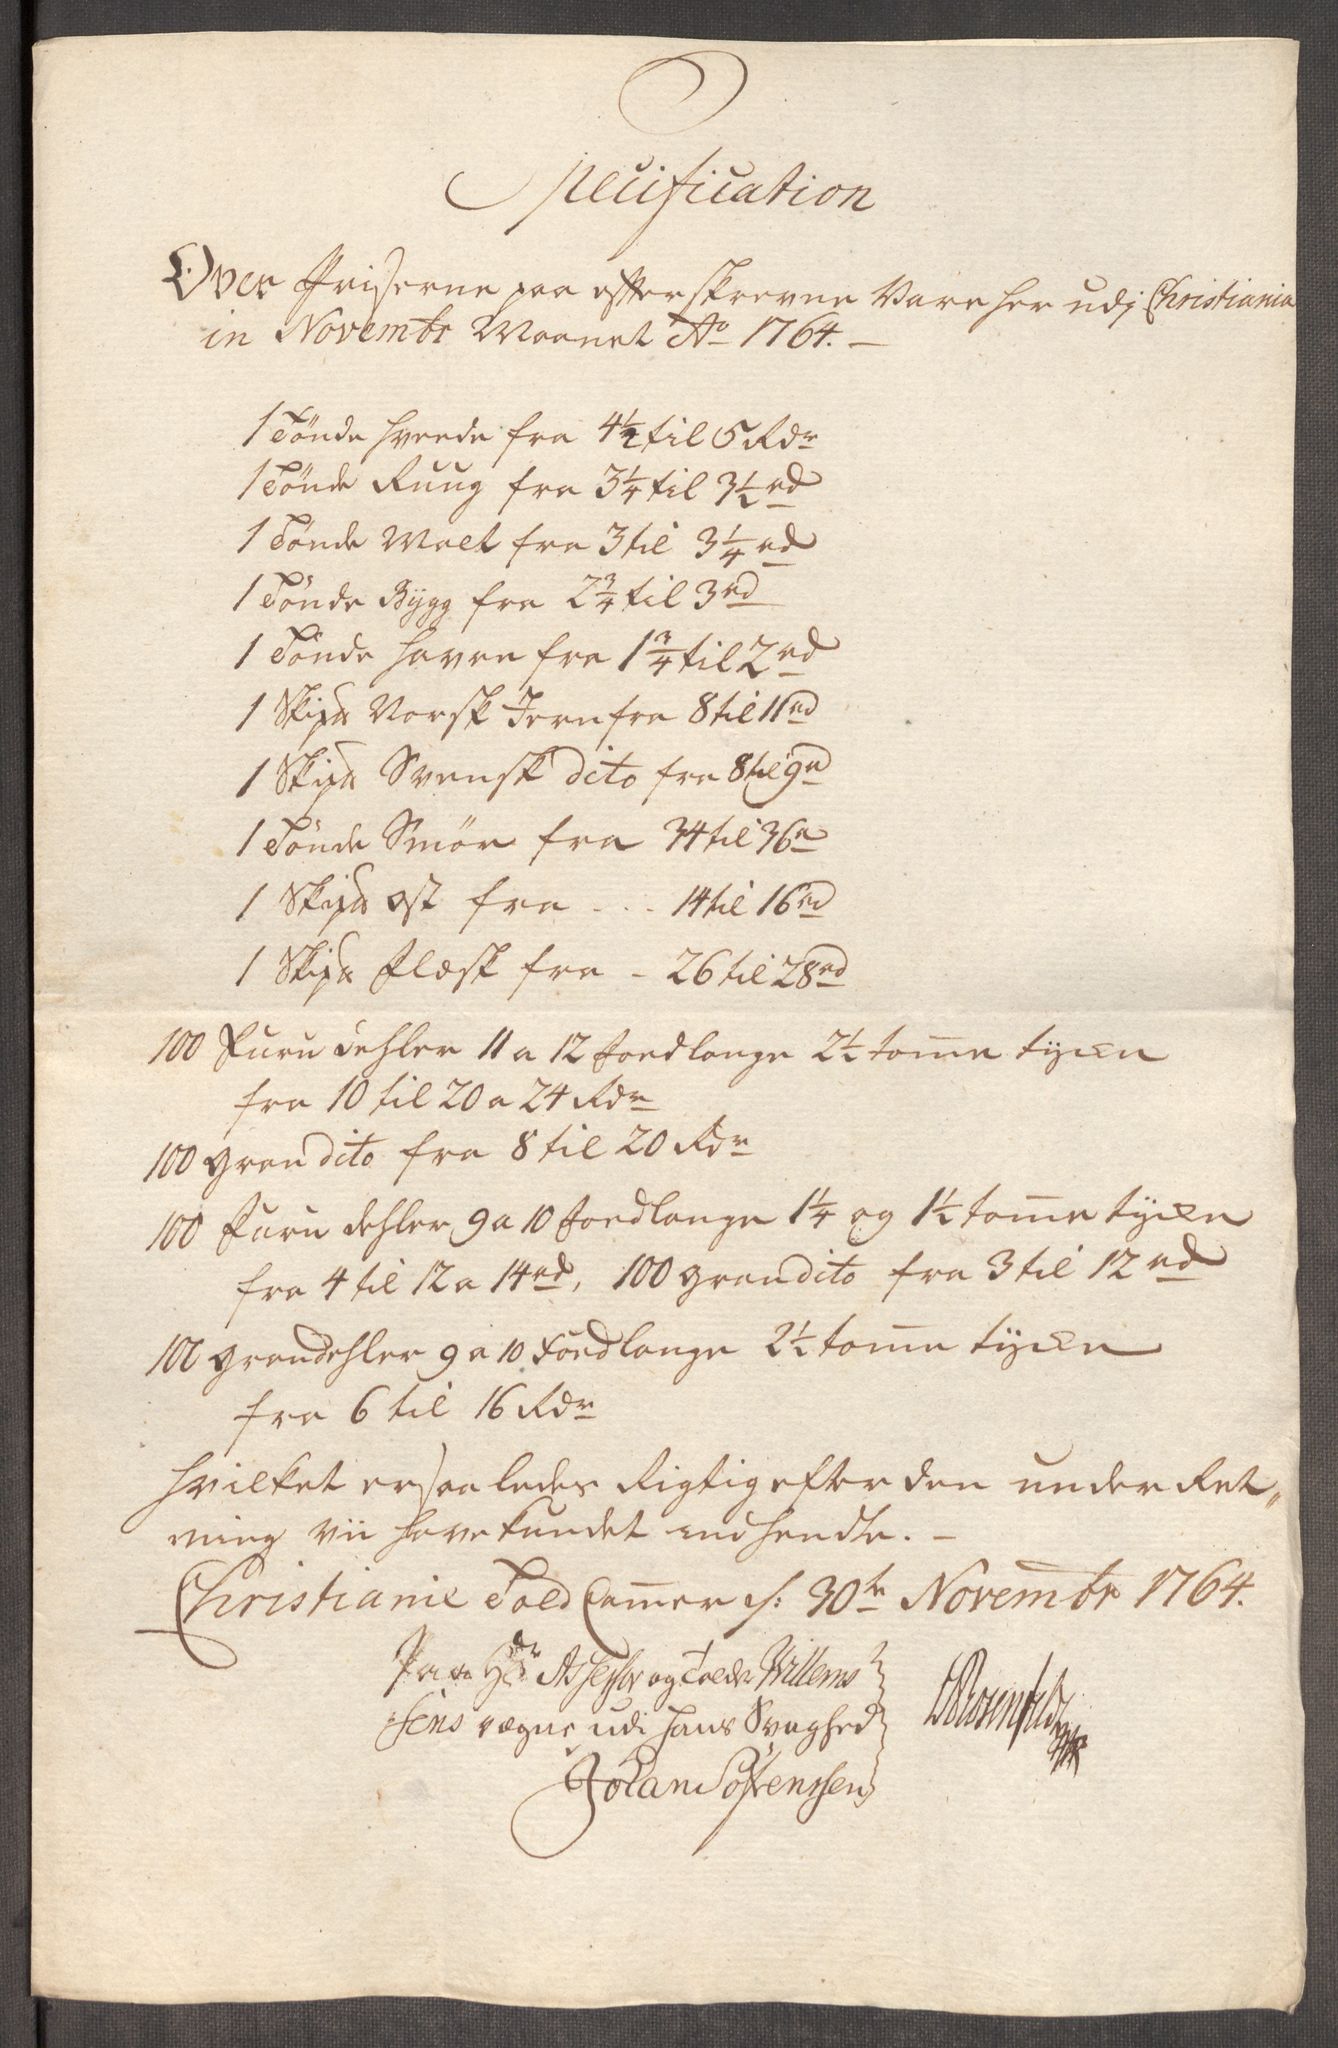 Specification
Over Priserne paa efterskrevne Vare her udj Christiania
in Novembr Maanet Ao 1764. –
1 Tönde hvede fra 4½ til 5 Rdr
1 Tönde Ruug fra 3¼ til 3½ rd
1 Tönde Malt fra 3 til 3¼ rd
1 Tönde Bÿgg fra 2¾ til 3 rd
1 Tönde havre fra 1¾ til 2 rd
1 Skipd Norsk Jern fra 8 til 11 rd
1 Skipd Svensk dito fra 8 til 9 rd
1 Tönde Smör fra 34 til 36 r
1 Skipd ost fra - . . 14 til 16 rd
1 Skipd Flæsk fra - 26 til 28 rd
100 Furu Dehler 11 a 12 foed lange 2½ tomme tÿcke
fra 10 til 20 a 24 Rdr
100 gran dito fra 8 til 20 Rdr
100 Furu dehler 9 a 10 foed lange 1¼ og 1½ tomme tÿcke
fra 4 til 12 a 14 rd, 100 gran dito fra 3 til 12 rd
100 grandehler 9 a 10 foed lange 2½ tomme tÿcke
fra 6 til 16 Rdr
hvilket er saaledes Rigtig efter den under Ret„
ning vii have kundet indhendte. –
Christianie Told Cammer d: 30te Novembr 1764.
Paa Hr Assessor og Tolder Willems
sens vægne udi hans Svaghed
Sörenssen
Rosenfeldt